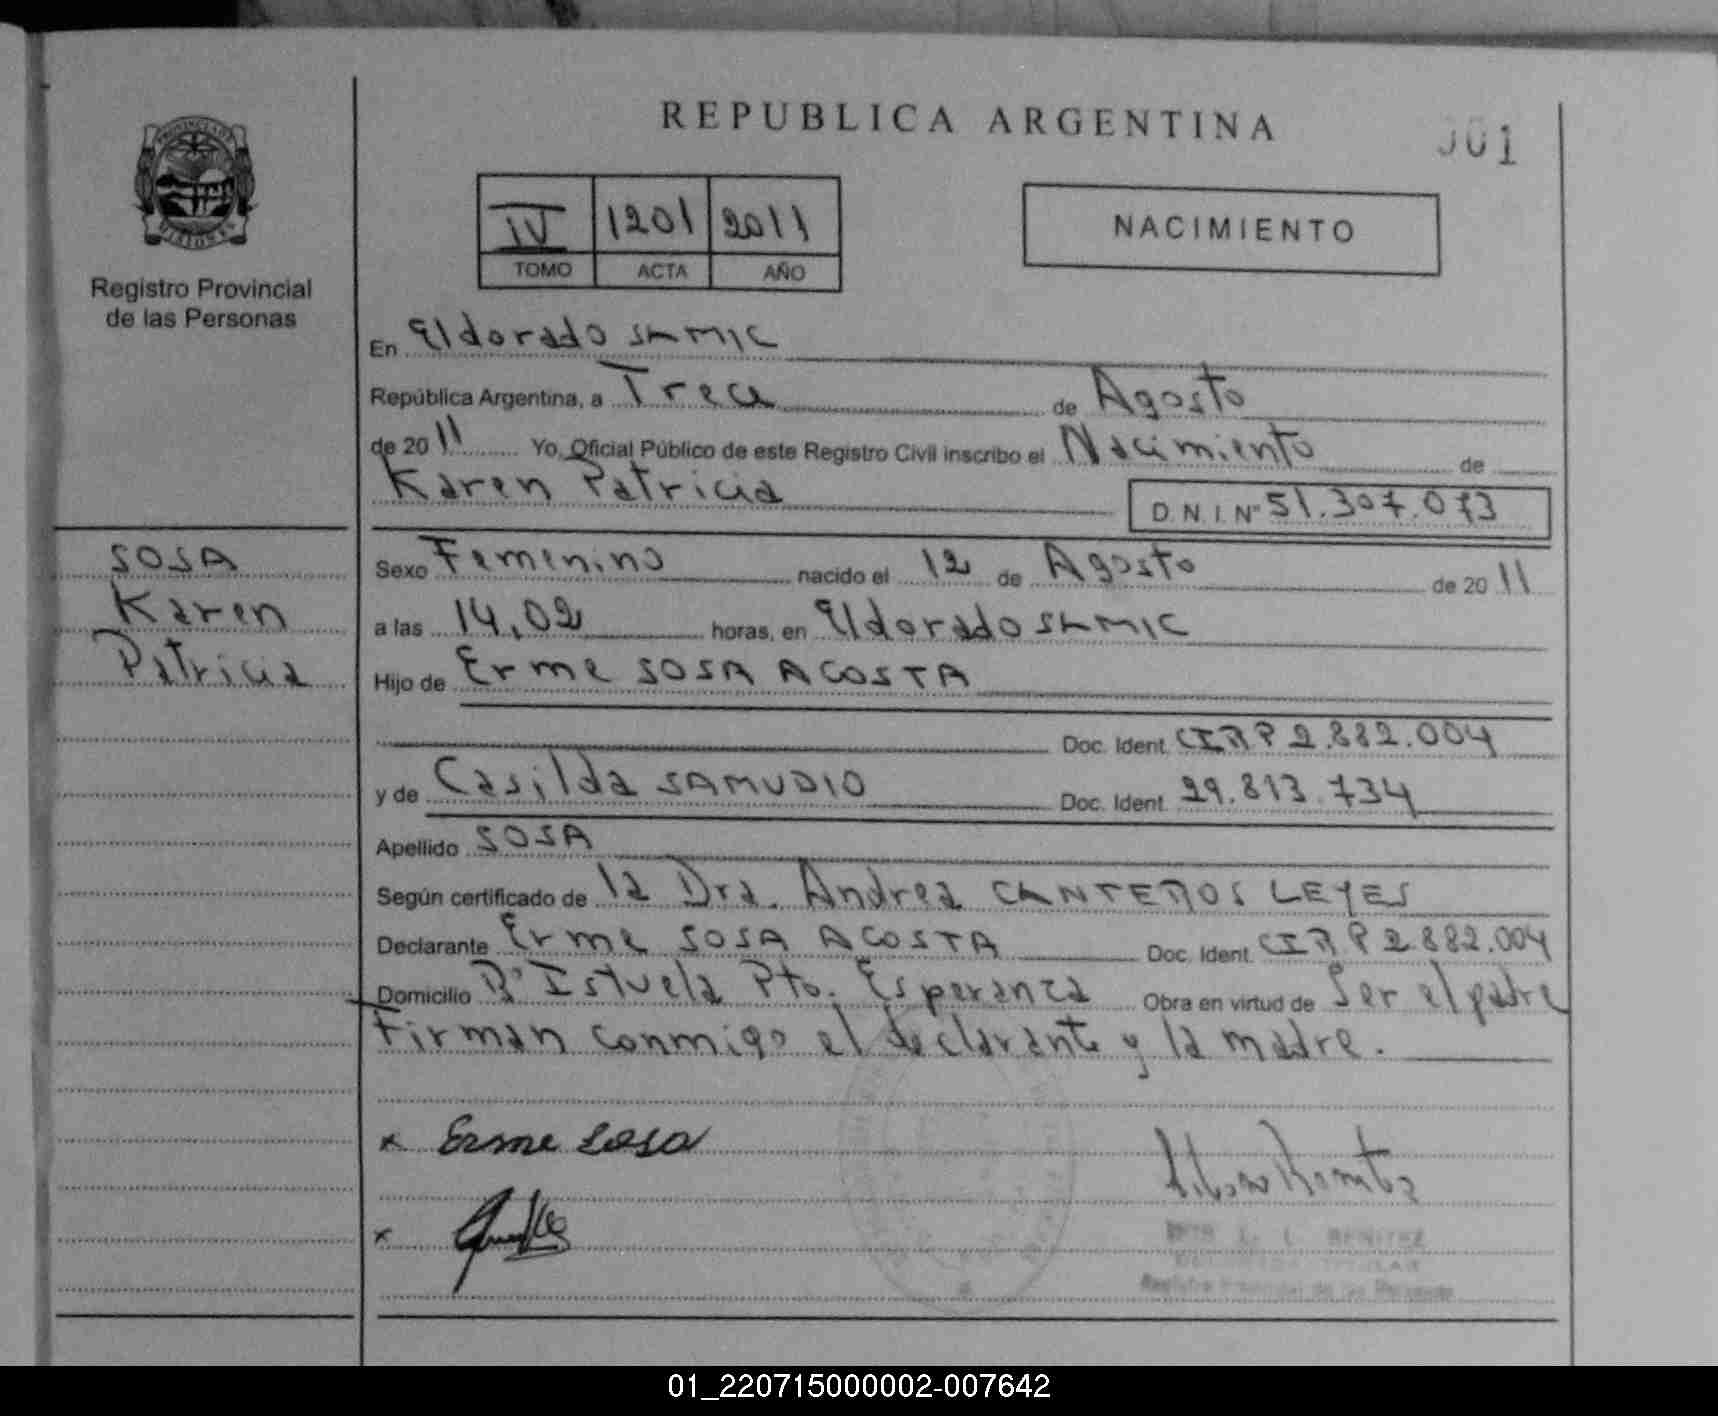 REPUBLICA ARGENTINA
001
PROVINCIA DE MISIONES
Registro Provincial
de las Personas
IV 1201 2011
TOMO ACTA AÑO
NACIMIENTO
En Eldorado SAMIC
República Argentina, a Trece de Agosto
de 2011 Yo, Oficial Público de este Registro Civil inscribo el Nacimiento de
Karen Patricia D.N.I. Nº 51.307.073
SOSA
Karen
Patricia
Sexo Femenino nacido el 12 de Agosto de 2011
a las 14,02 horas, en Eldorado SAMIC
Hijo de Erme SOSA ACOSTA
Doc. Ident. CIRP 2.882.004
y de Casilda SAMUDIO Doc. Ident. 29.813.734
Apellido SOSA
Según certificado de la Dra. Andrea CANTEROS LEYES
Declarante Erme SOSA ACOSTA Doc. Ident. CIRP 2.882.004
Domicilio Bº Istuela Pto. Esperanza Obra en virtud de Ser el padre
Firman conmigo el declarante y la madre.
x Erme Sosa
x
BENITEZ
Registro Provincial de las Personas
01_220715000002-007642